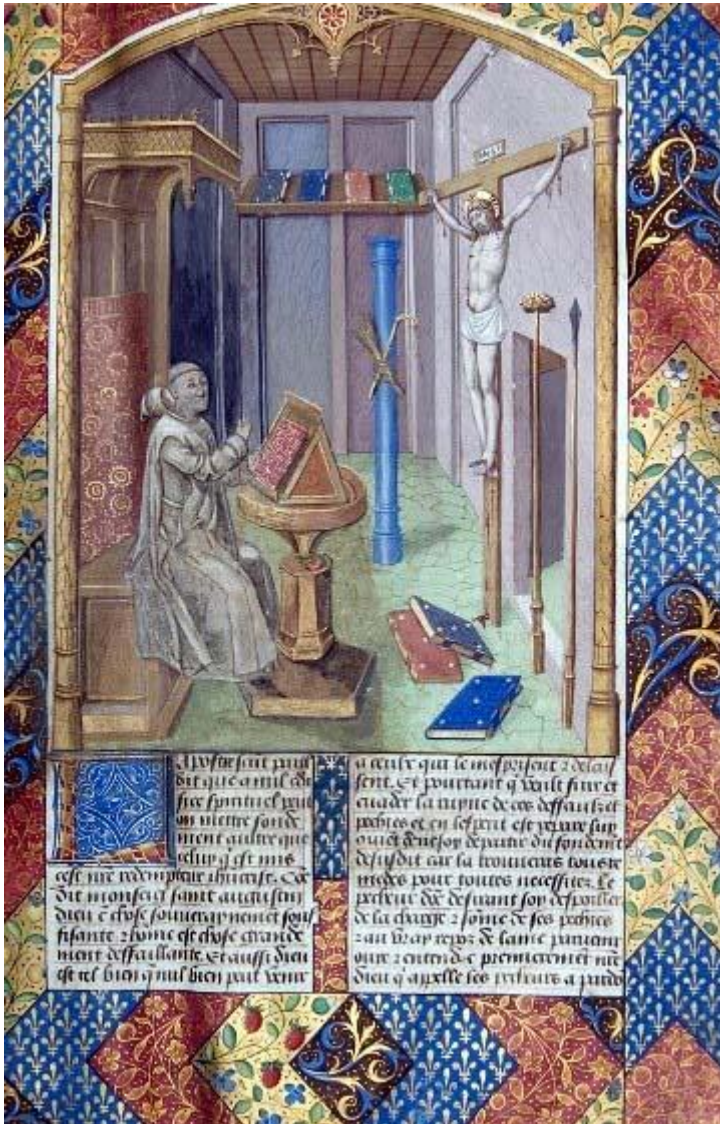 INRI
apostre saint paul
dit que a nul edi
fice spirituel peut
on mettre fonde
ment aultre que
celuy q̄ est mis
cest nr̄e redempteur ihūcrist. Et
dit monseigr̄ saint augustin
dieu ē chose souverainement souf
fisante ⁊ hōme est chose grande
ment deffaillante. Et aussi dieu
est tel bien q̄ nul bien peut venir
a ceulx qui le mesprisent ⁊ delais
sent. Et pourtant q̄ veult fuir et
evader la ruyne de ces deffaulx et
peches et en lesperit est repare
de soy departir du fondemt̄
dessusdit car la trouveras tous re
medes pour toutes necessitez. Le
pecheur dōc desirant soy despoiller
de la charge ⁊ sōme de ses peches
⁊ au vray repoz de lame parvenir
oure ⁊ entende premieremēt nr̄e
dieu q̄ appelle les pecheurs a pardō